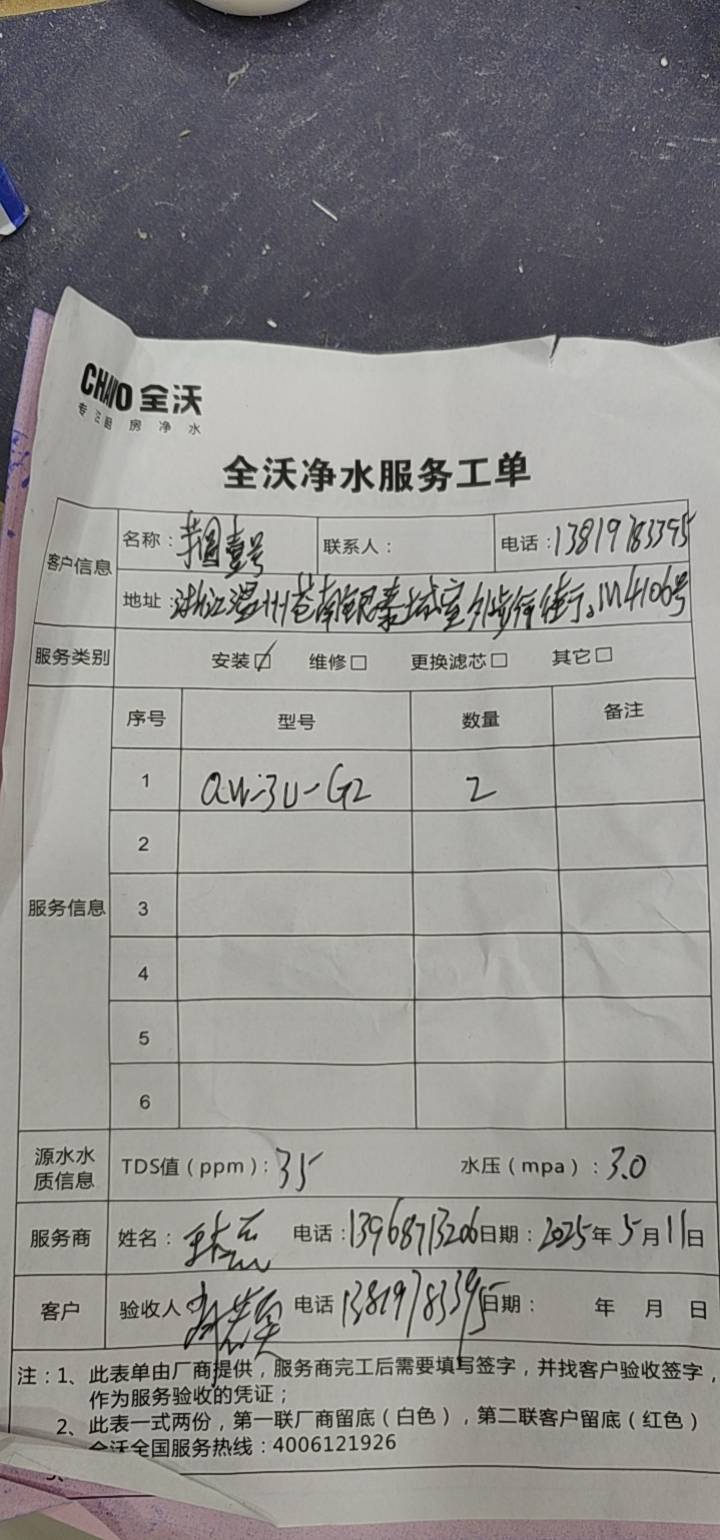 CHAWO 全沃
专注厨房净水
全沃净水服务工单
客户信息 名称: 壹号 联系人: 电话:13819783395
地址:浙江温州苍南银泰城室外步行街 M4106号
服务类别 安装☑ 维修□ 更换滤芯□ 其它□
服务信息 序号 型号 数量 备注
1 QW-3U-G2 2
2
3
4
5
6
源水水质信息 TDS值(ppm):35 水压(mpa):3.0
服务商 姓名: 电话:13968713206 日期:2025年5月11日
客户 验收人 电话 13819783395 日期: 年 月 日
注:1、此表单由厂商提供,服务商完工后需要填写签字,并找客户验收签字,
作为服务验收的凭证;
2、此表一式两份,第一联厂商留底(白色),第二联客户留底(红色)
全沃全国服务热线:4006121926